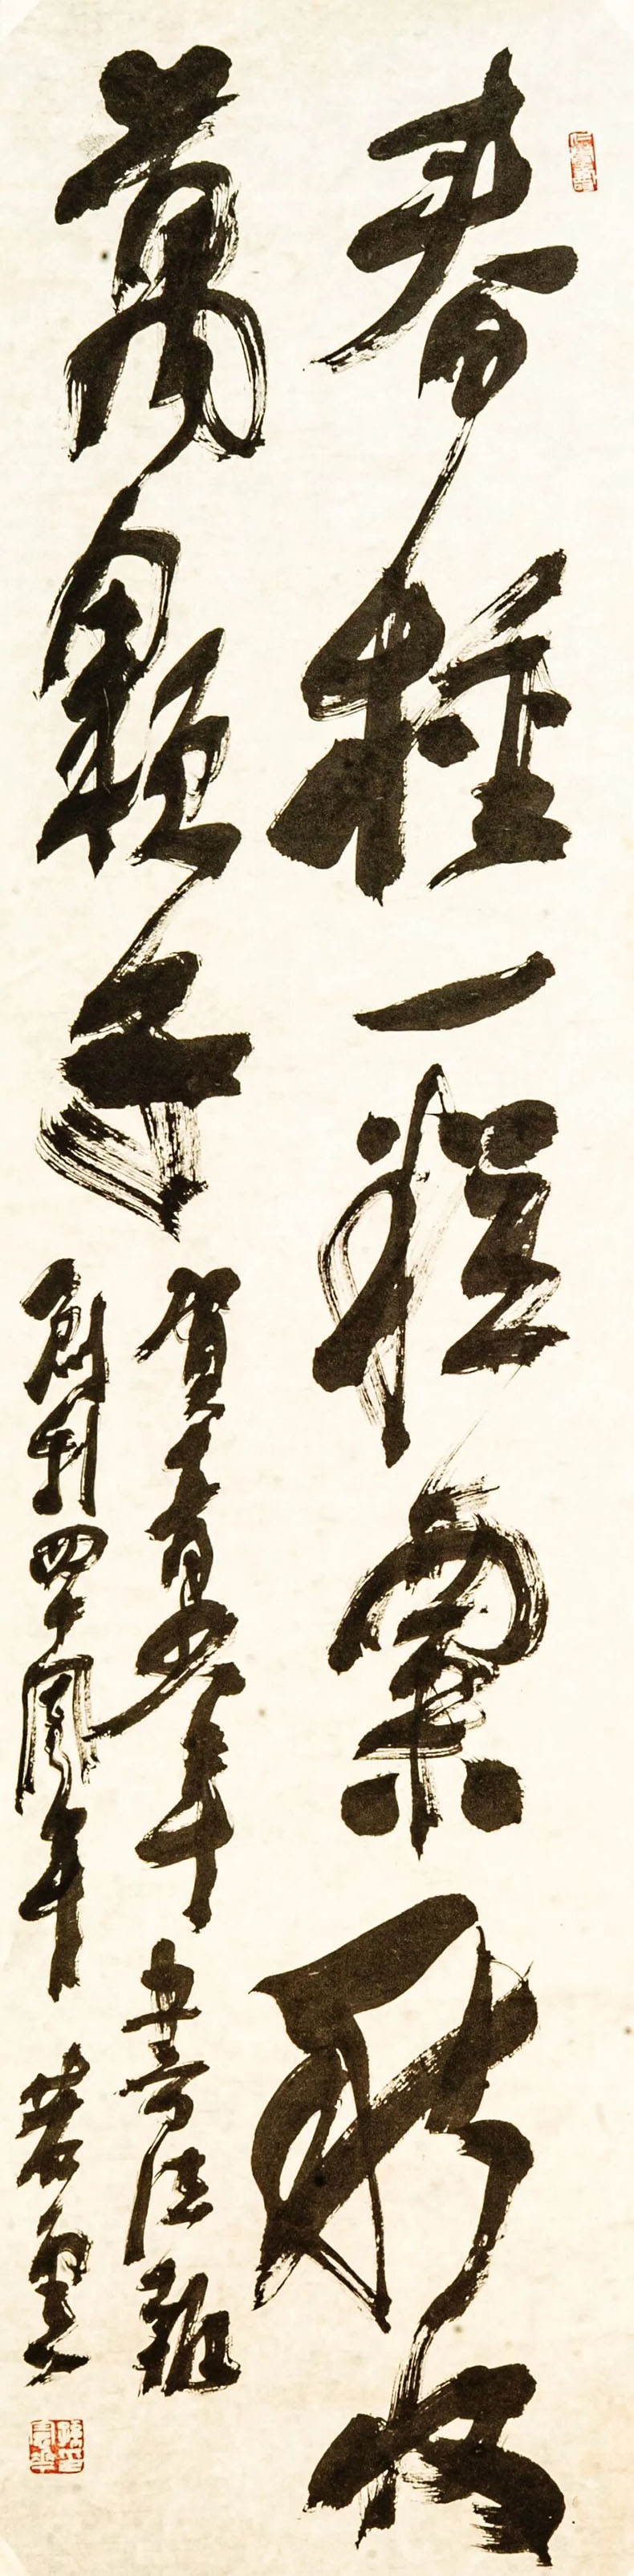 春種一粒粟秋收
萬顆子
賀青少年書法報
創刊四十周年